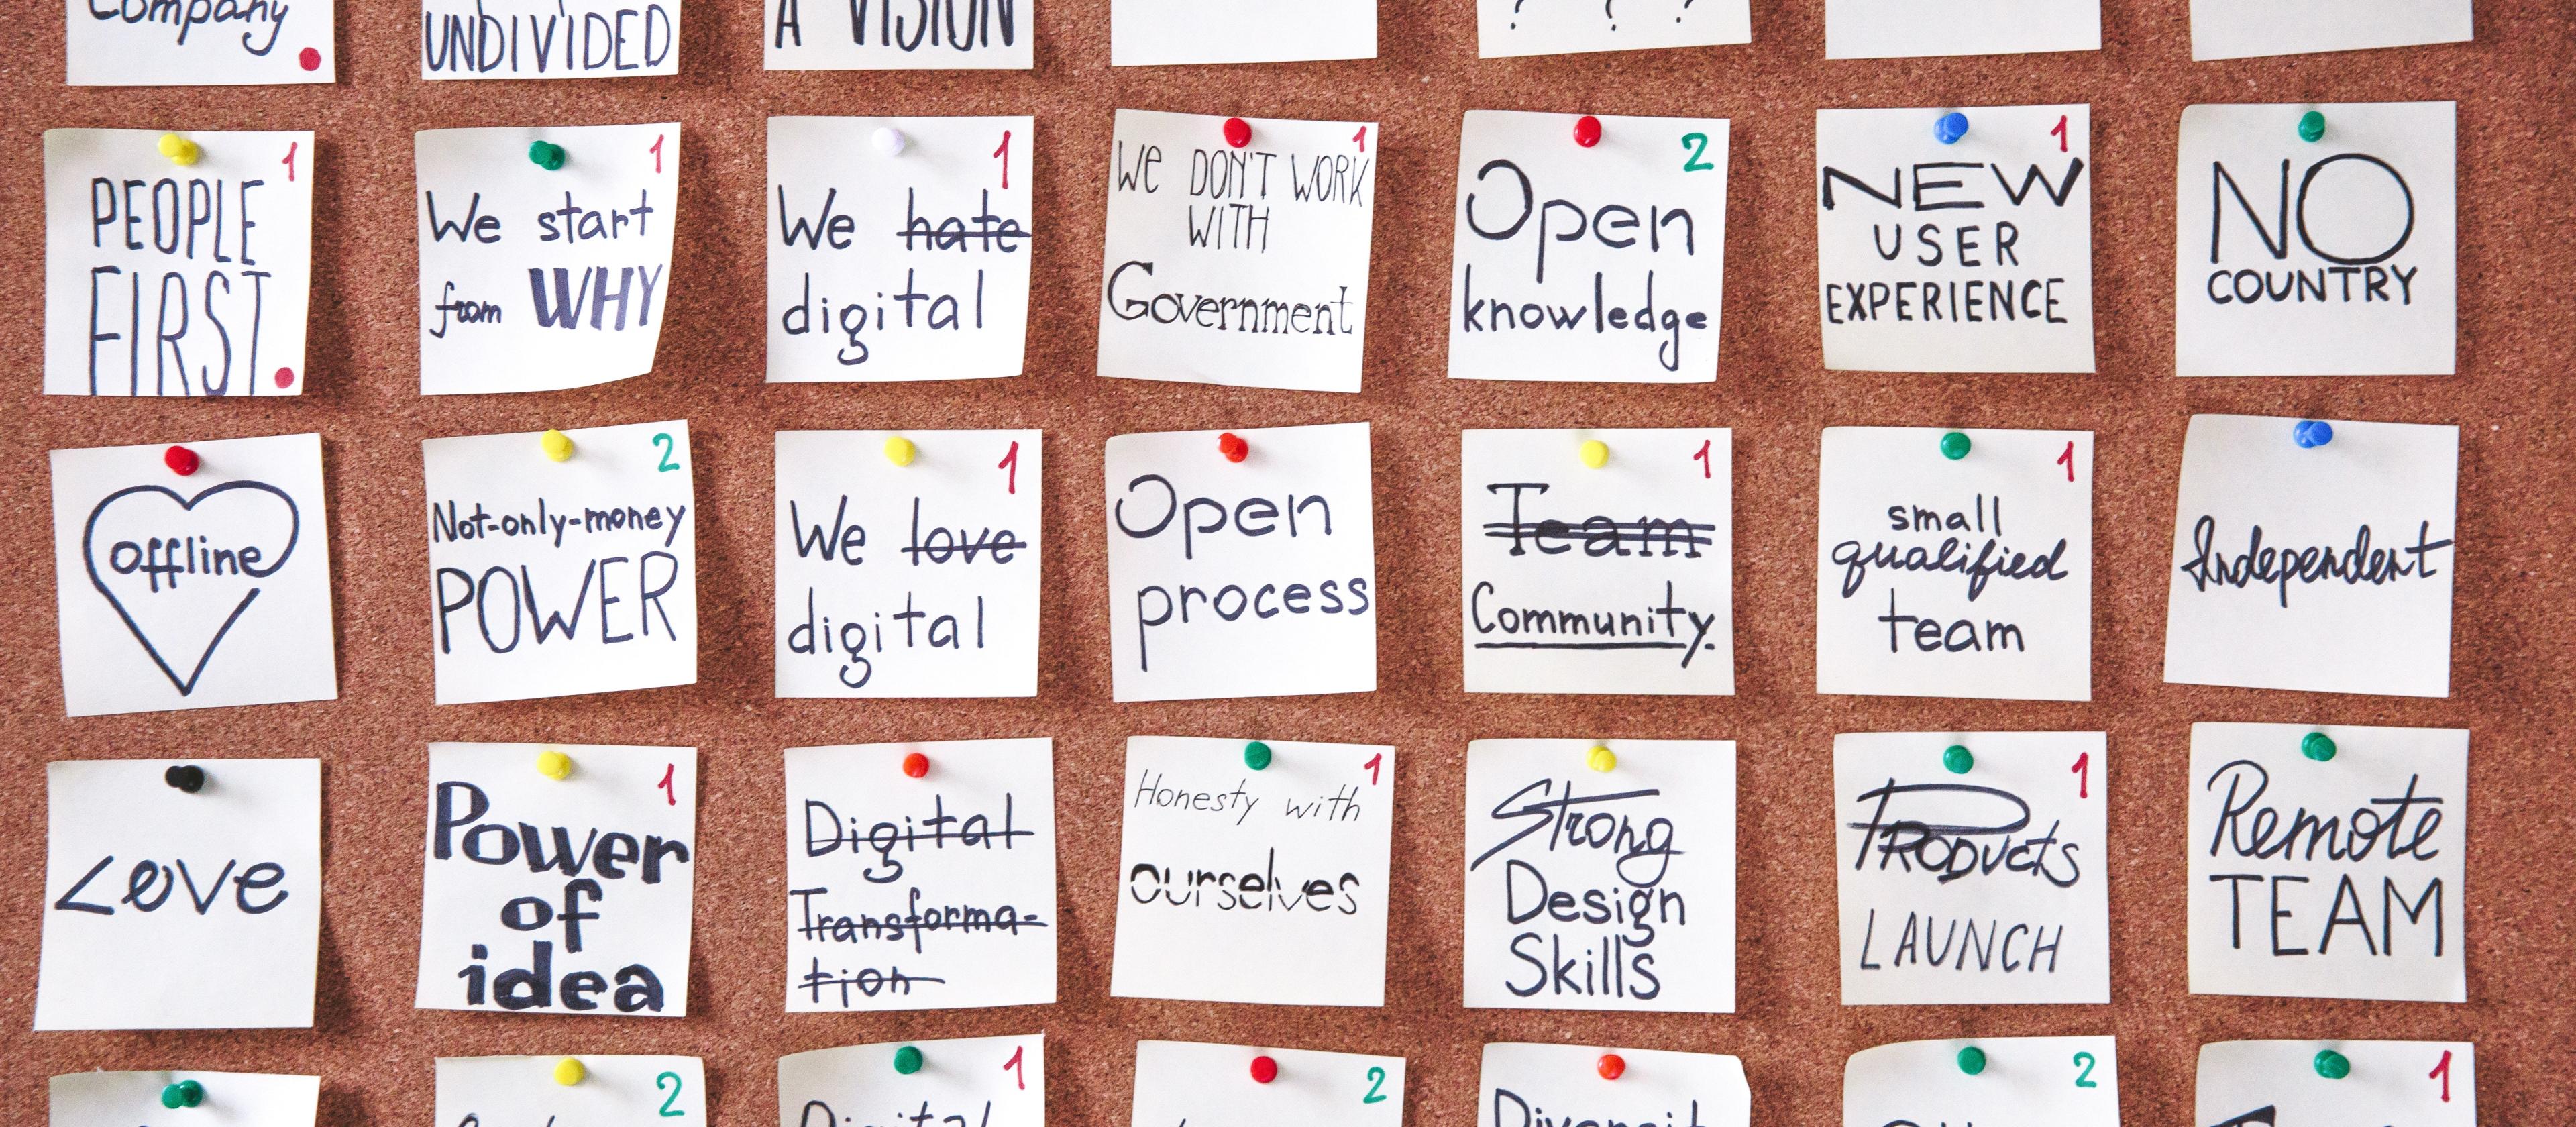 Company
UNDIVIDED
A VISION
? ? ?
1
PEOPLE
FIRST.
1
We start
from WHY
1
We hate
digital
1
We DON'T WORK
WITH
Government
2
Open
knowledge
1
NEW
USER
EXPERIENCE
NO
COUNTRY
offline
2
Not-only-money
POWER
1
We love
digital
Open
process
1
Team
Community.
1
small
qualified
team
Independent
Love
1
Power
of
idea
Digital
Transforma-
tion
1
Honesty with
ourselves
Strong
Design
Skills
1
PRODUCTS
LAUNCH
Remote
TEAM
2
1
Digital
2
Diversit
2
1